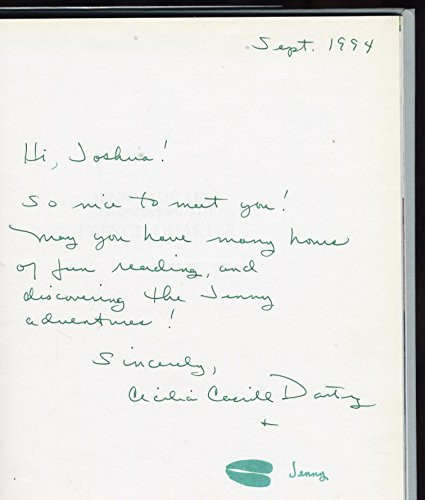 Sept. 1994
Hi, Joshua!
So nice to meet you!
May you have many hours
of fun reading, and
discovering the Jenny
adventures!
Sincerely,
Cecilia
+
Jenny